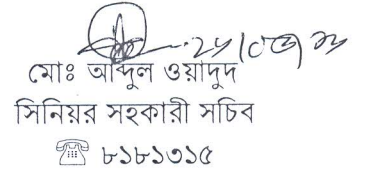 মোঃ আব্দুল ওয়াদুদ
সিনিয়র সহকারী সচিব
☏ ৮১৮১৩১৫